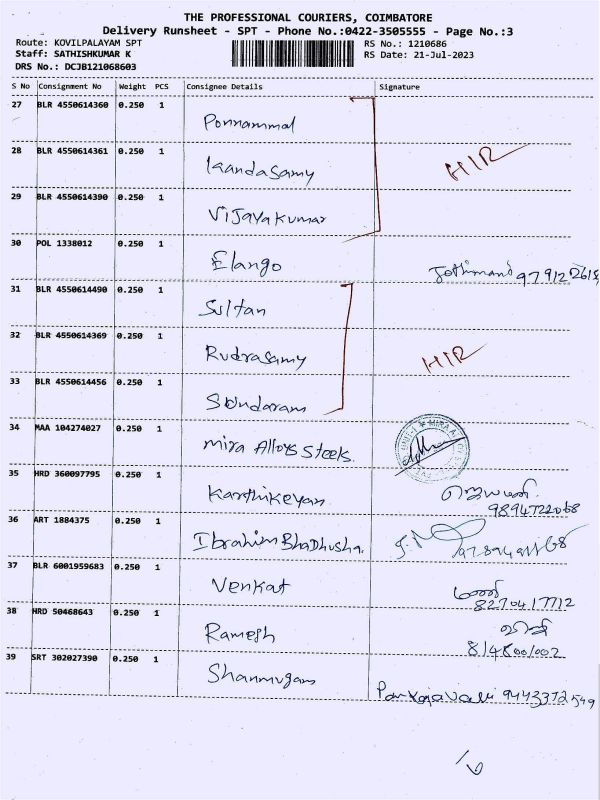 THE PROFESSIONAL COURIERS, COIMBATORE
Delivery Runsheet - SPT - Phone No.:0422-3505555 - Page No.:3
Route: KOVILPALAYAM SPT RS No.: 1210686
Staff: SATHISHKUMAR K RS Date: 21-Jul-2023
DRS No.: DCJB121068603
S No Consignment No Weight PCS Consignee Details Signature
27 BLR 4550614360 0.250 1 Ponnammal
28 BLR 4550614361 0.250 1 Kandasamy HIR
29 BLR 4550614390 0.250 1 Vijayakumar
30 POL 1338012 0.250 1 Elango Jothimani
31 BLR 4550614490 0.250 1 Sultan
32 BLR 4550614369 0.250 1 Rudrasamy HIR
33 BLR 4550614456 0.250 1 Sundaram
34 MAA 104274027 0.250 1 Mira Alloys Steels.
35 HRD 360097795 0.250 1 Karthikeyan
9894722068
36 ART 1884375 0.250 1 Ibrahim Bhadhusha.
37 BLR 6001959683 0.250 1 Venkat
8270417712
38 HRD 50468643 0.250 1 Ramesh
39 SRT 302027390 0.250 1 Shanmugam
9443372549